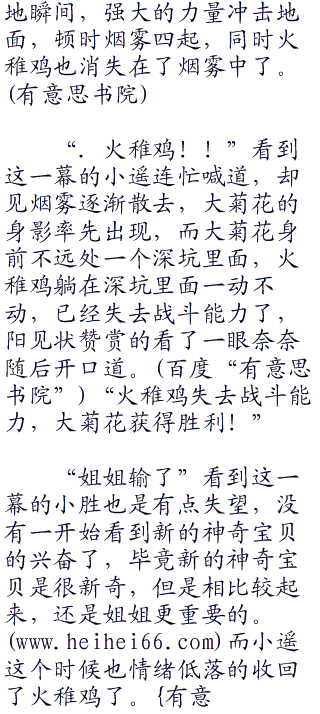 地瞬间，强大的力量冲击地
面，顿时烟雾四起，同时火
稚鸡也消失在了烟雾中了。
(有意思书院)
“．火稚鸡！！”看到
这一幕的小遥连忙喊道，却
见烟雾逐渐散去，大菊花的
身影率先出现，而大菊花身
前不远处一个深坑里面，火
稚鸡躺在深坑里面一动不
动，已经失去战斗能力了，
阳见状赞赏的看了一眼奈奈
随后开口道。(百度“有意思
书院”)“火稚鸡失去战斗能
力，大菊花获得胜利！”
“姐姐输了”看到这一
幕的小胜也是有点失望，没
有一开始看到新的神奇宝贝
的兴奋了，毕竟新的神奇宝
贝是很新奇，但是相比较起
来，还是姐姐更重要的。
(www.heihei66.com)而小遥
这个时候也情绪低落的收回
了火稚鸡了。{有意